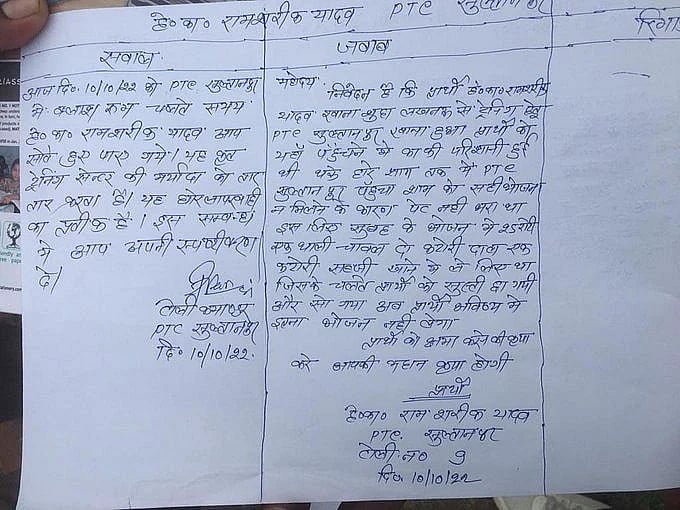 हे० का० रामशरीक यादव PTC सुल्तानपुर
सवाल
आप दि० 10/10/22 को PTC सुल्तानपुर
में क्लास रूम चलते समय
हे० का० रामशरीक यादव आप
सोते हुए पाए गये। यह कृत
ट्रेनिंग सेन्टर की मर्यादा को तार
तार करता है। यह घोर लापरवाही
का प्रतीक है। इस सम्बन्ध
में आप अपनी स्पष्टीकरण
दे।
टोली कमाण्डर
PTC सुल्तानपुर
दि० 10/10/22.
जवाब
महोदय
निवेदन है कि प्रार्थी हे० का० रामशरीक
यादव रवाना शुदा लखनऊ से ट्रेनिंग हेतु
PTC सुल्तानपुर रवाना हुआ प्रार्थी को
यहाँ पहुँचने में काफी परेशानी हुई
थी थके हारे शाम तक मैं PTC
सुल्तानपुर पहुंचा शाम को सही भोजन
न मिलने के कारण पेट नही भरा था
इस लिए सुबह के भोजन में 25 रोटी
एक थाली चावल दो कटोरी दाल एक
कटोरी सब्जी खाने में ले लिए था
जिसके चलते प्रार्थी को सुस्ती आ गयी
और सो गया अब प्रार्थी भविष्य में
इतना भोजन नहीं लेगा
प्रार्थी को क्षमा करने की कृपा
करे आपकी महान कृपा होगी
प्रार्थी
हे० का० राम शरीक यादव
PTC. सुल्तानपुर
टोली न० 9
दि० 10/10/22